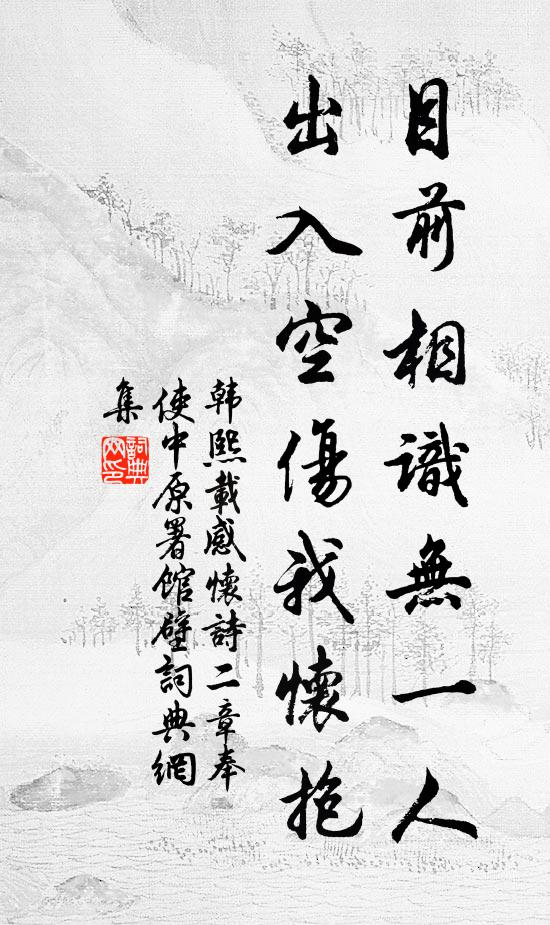 目前相識無一人
出入空傷我懷抱
韩熙載感懷詩二章奉
使中原署馆壁詞典網
集
詞典網印